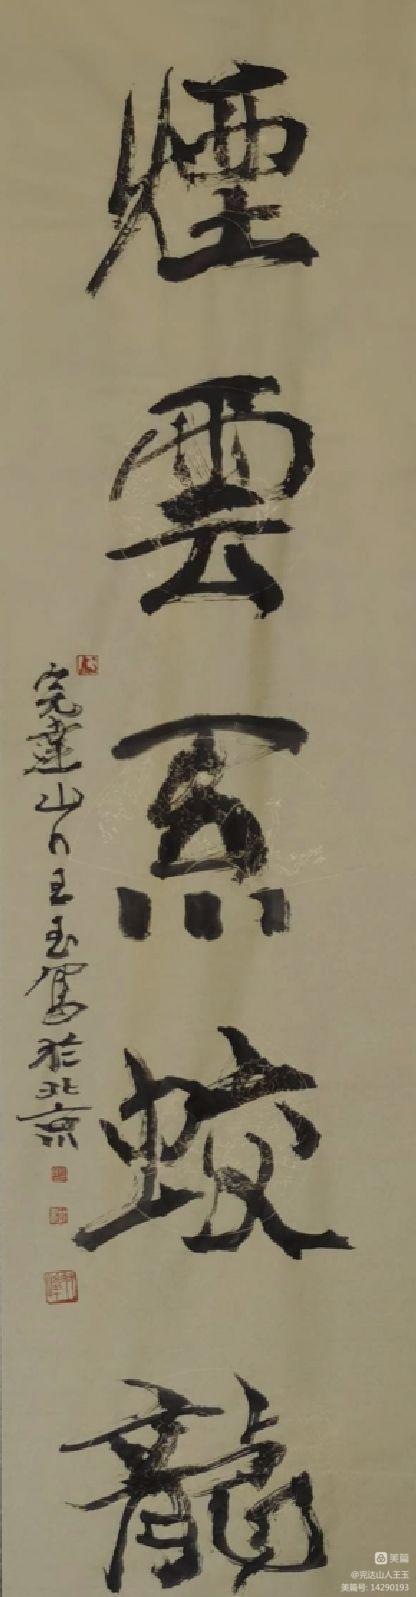 煙雲系蛟龍
完達山人王玉寫於北京
美篇
@完达山人王玉
美篇号: 14290193